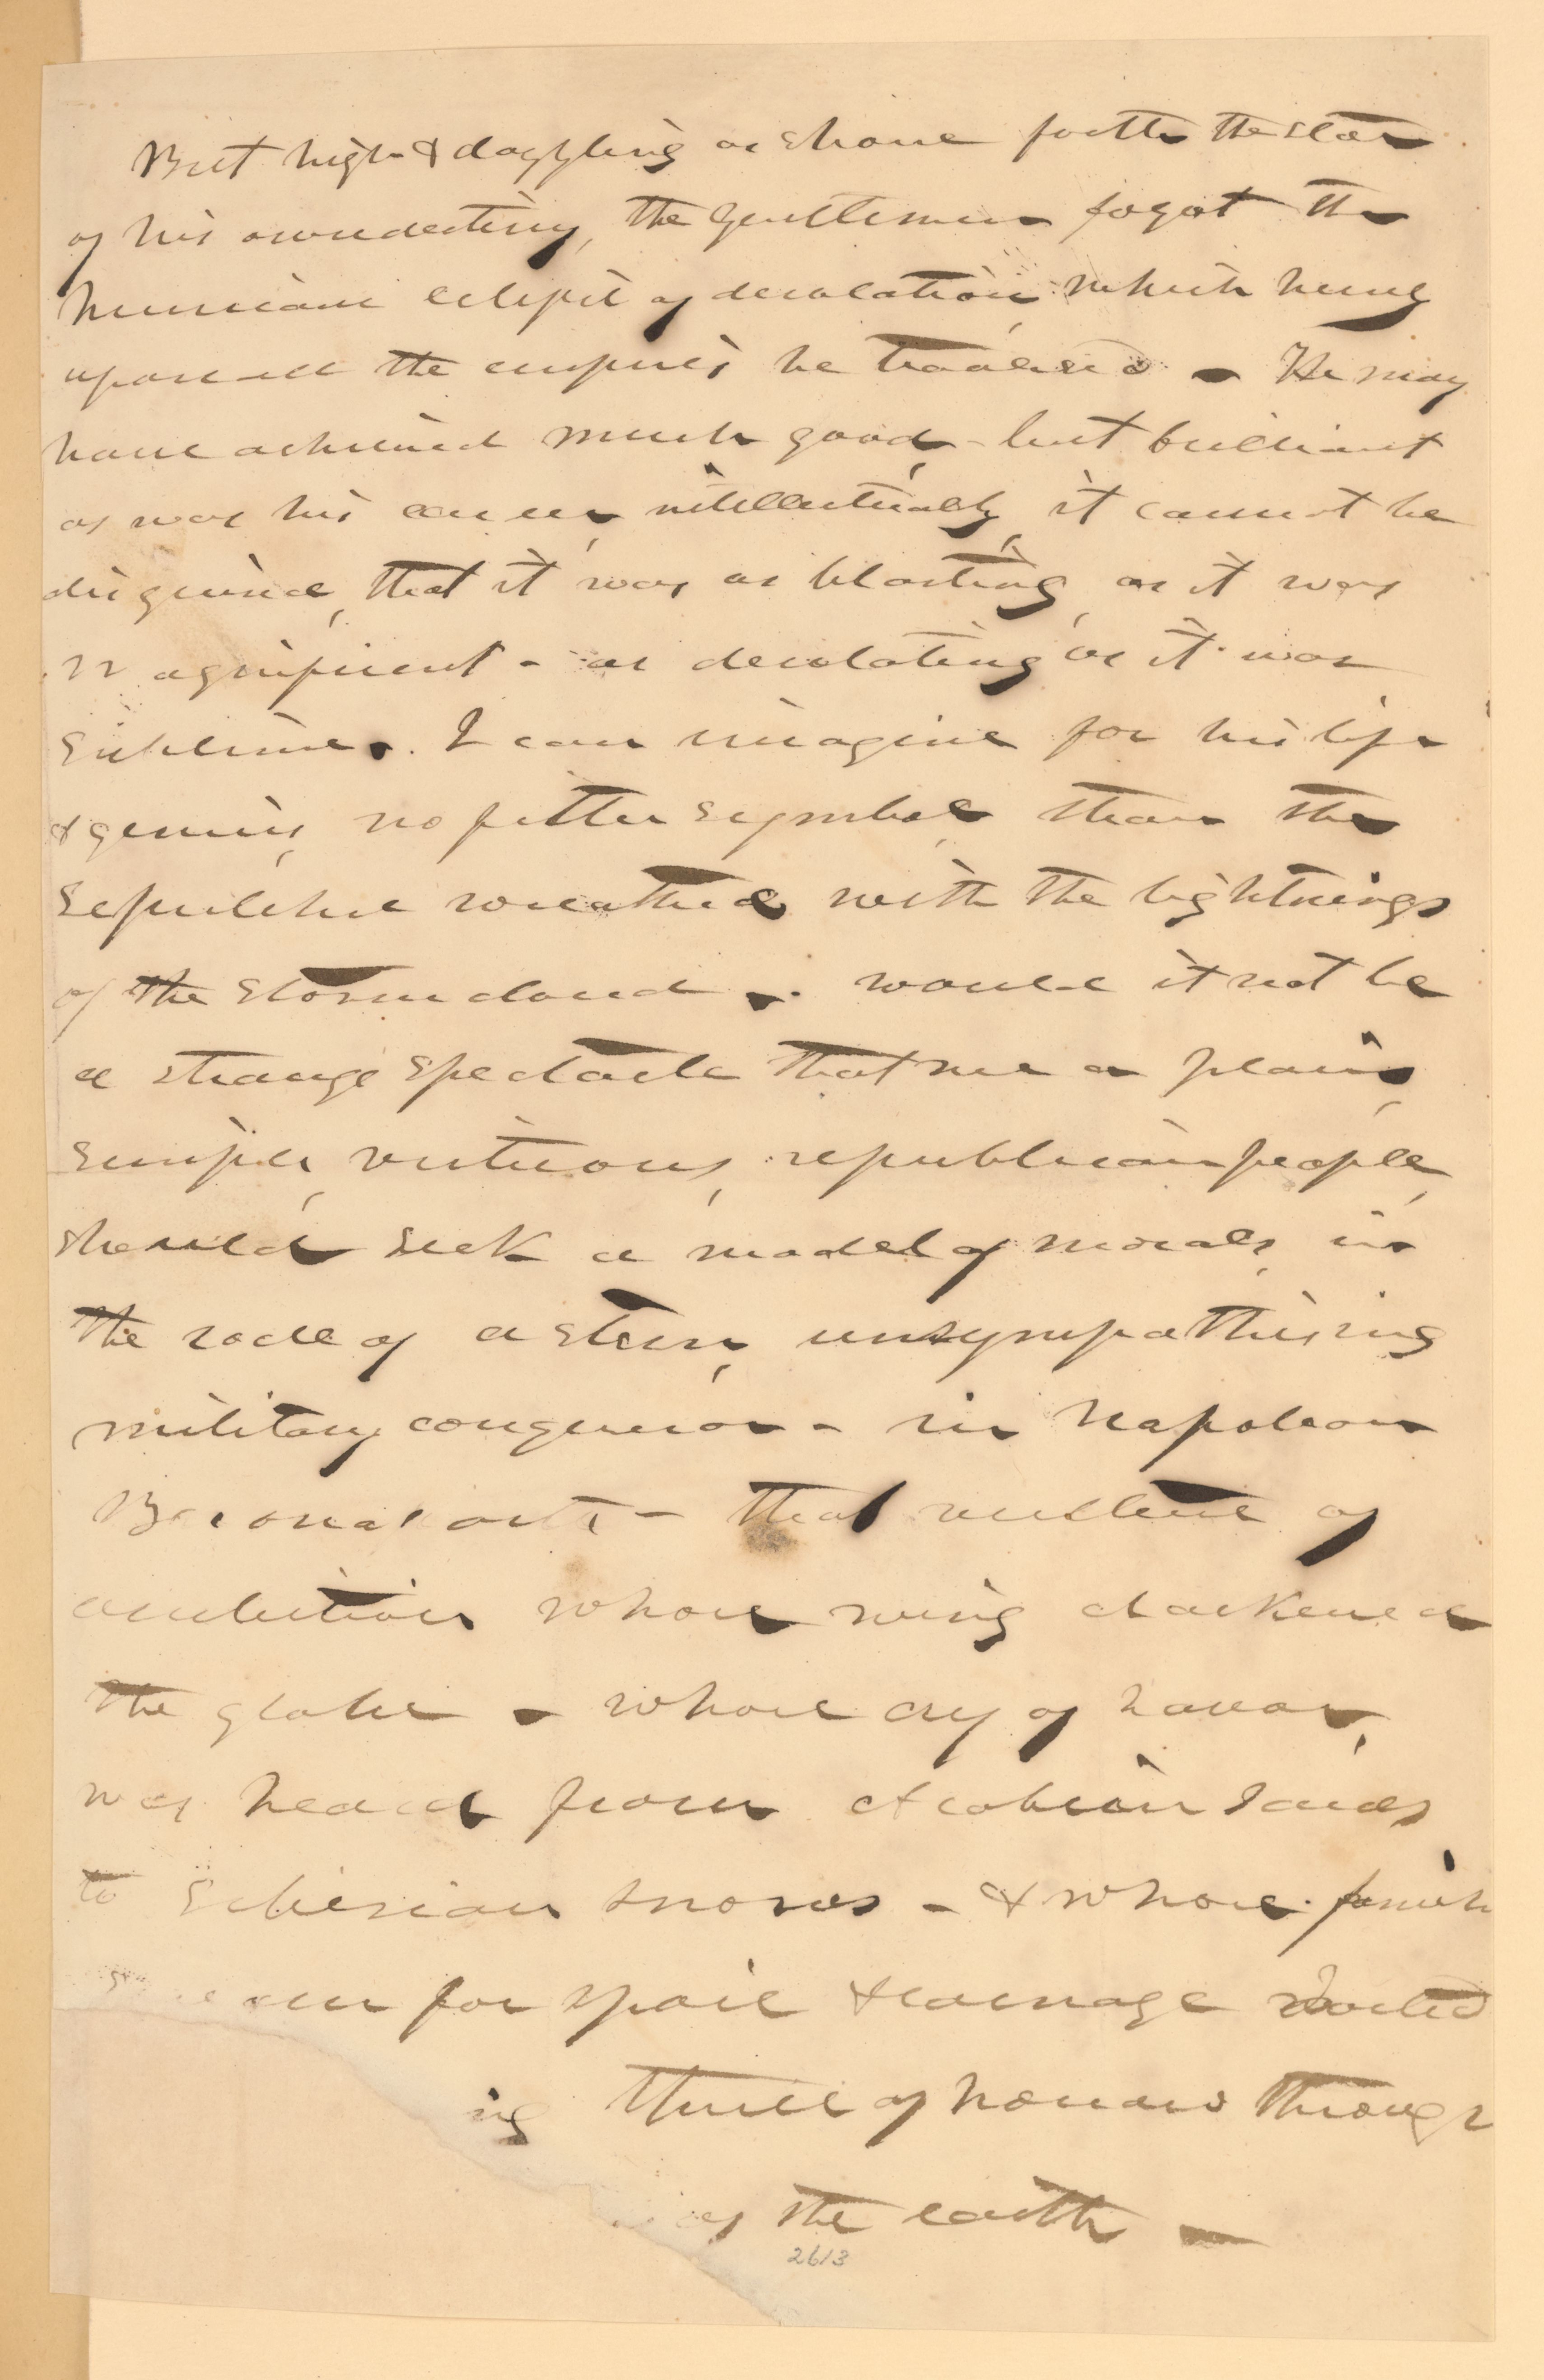 But high & dazzling as shone forth the star
of his own destiny, the gentleman forgot the
hurricane eclipse of desolation, which hung
upon all the empires he traversed - He may
have achieved much good, - but brilliant
as was his career, intellectually, it cannot be
disguised, that it was as blasting, as it was
magnificent - as desolating as it was
sublime. I can imagine for his life
& genius, no fitter symbol, than the
sepulchre wreathed with the lightnings
of the storm cloud. would it not be
a strange spectacle that we a plain,
simple, virtuous, republican people,
should seek a model of morals, in
the code of a stern, unsympathising
military conqueror - in Napoleon
Buonaparte - that vulture of
ambition whose wing darkened
the globe - whose cry of havoc,
was heard from Arabian sands
to Siberian snows - & whose famish
for spoil & carnage
ing thrill of horror through
of the earth -
2613